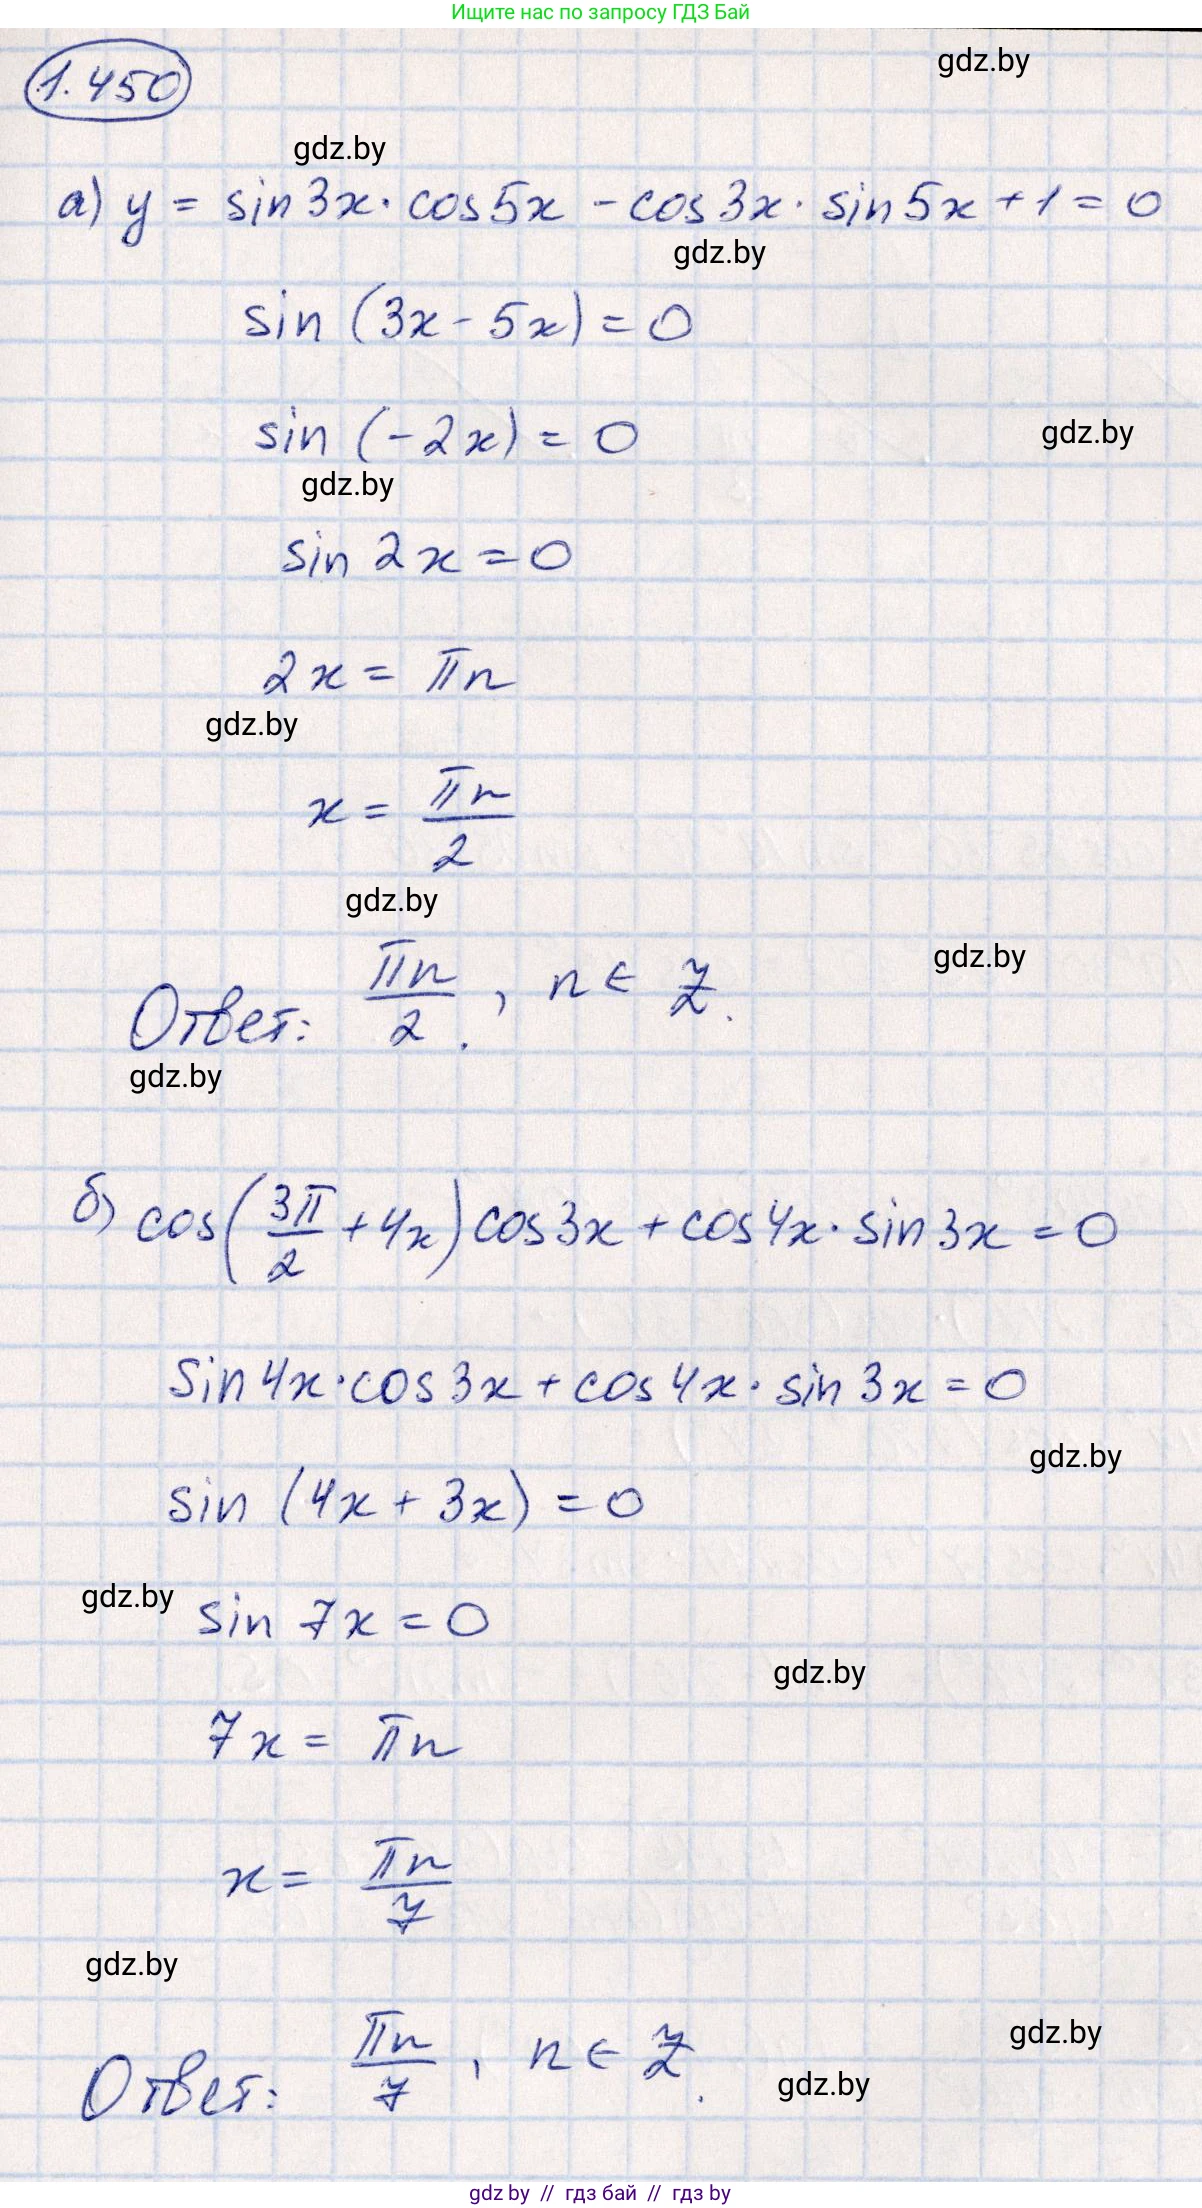 Ищите нас по запросу ГДЗ Бай
1.450
gdz.by
gdz.by
а) y = sin3x · cos5x - cos3x · sin5x + 1 = 0
gdz.by
sin (3x - 5x) = 0
sin (-2x) = 0
gdz.by
gdz.by
sin 2x = 0
2x = πn
gdz.by
x = πn/2
gdz.by
gdz.by
Ответ: πn/2, n ∈ Z.
gdz.by
б) cos(3π/2 + 4x) cos3x + cos4x · sin3x = 0
sin4x · cos3x + cos4x · sin3x = 0
gdz.by
sin (4x + 3x) = 0
gdz.by
sin 7x = 0
gdz.by
7x = πn
x = πn/7
gdz.by
gdz.by
Ответ: πn/7, n ∈ Z.
gdz.by
gdz by // гдз бай // гдз by